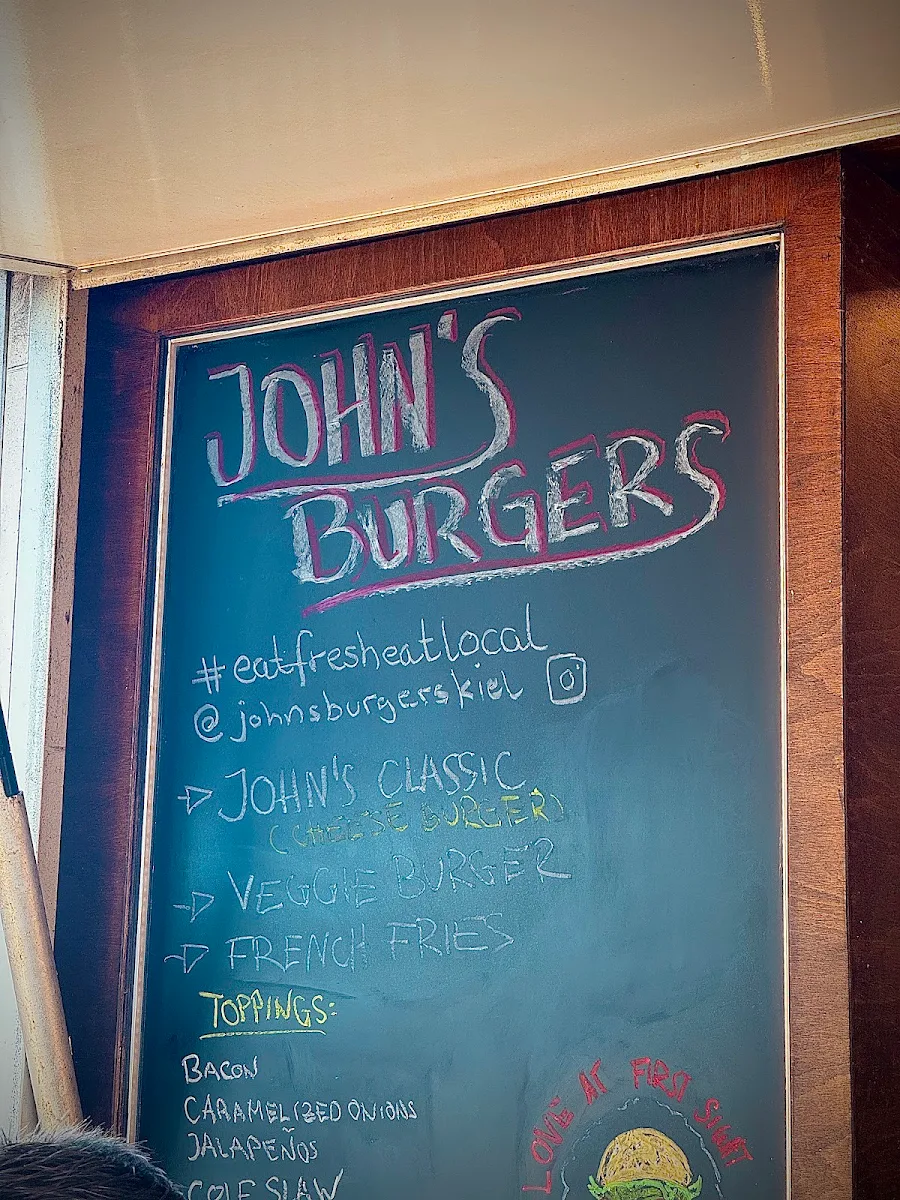 JOHN'S
BURGERS
#eatfresheatlocal
@johnsburgerskiel
JOHN'S CLASSIC
(CHEESE BURGER)
VEGGIE BURGER
FRENCH FRIES
TOPPINGS:
BACON
CARAMELIZED ONIONS
JALAPEÑOS
COLE SLAW
LOVE AT FIRST SIGHT